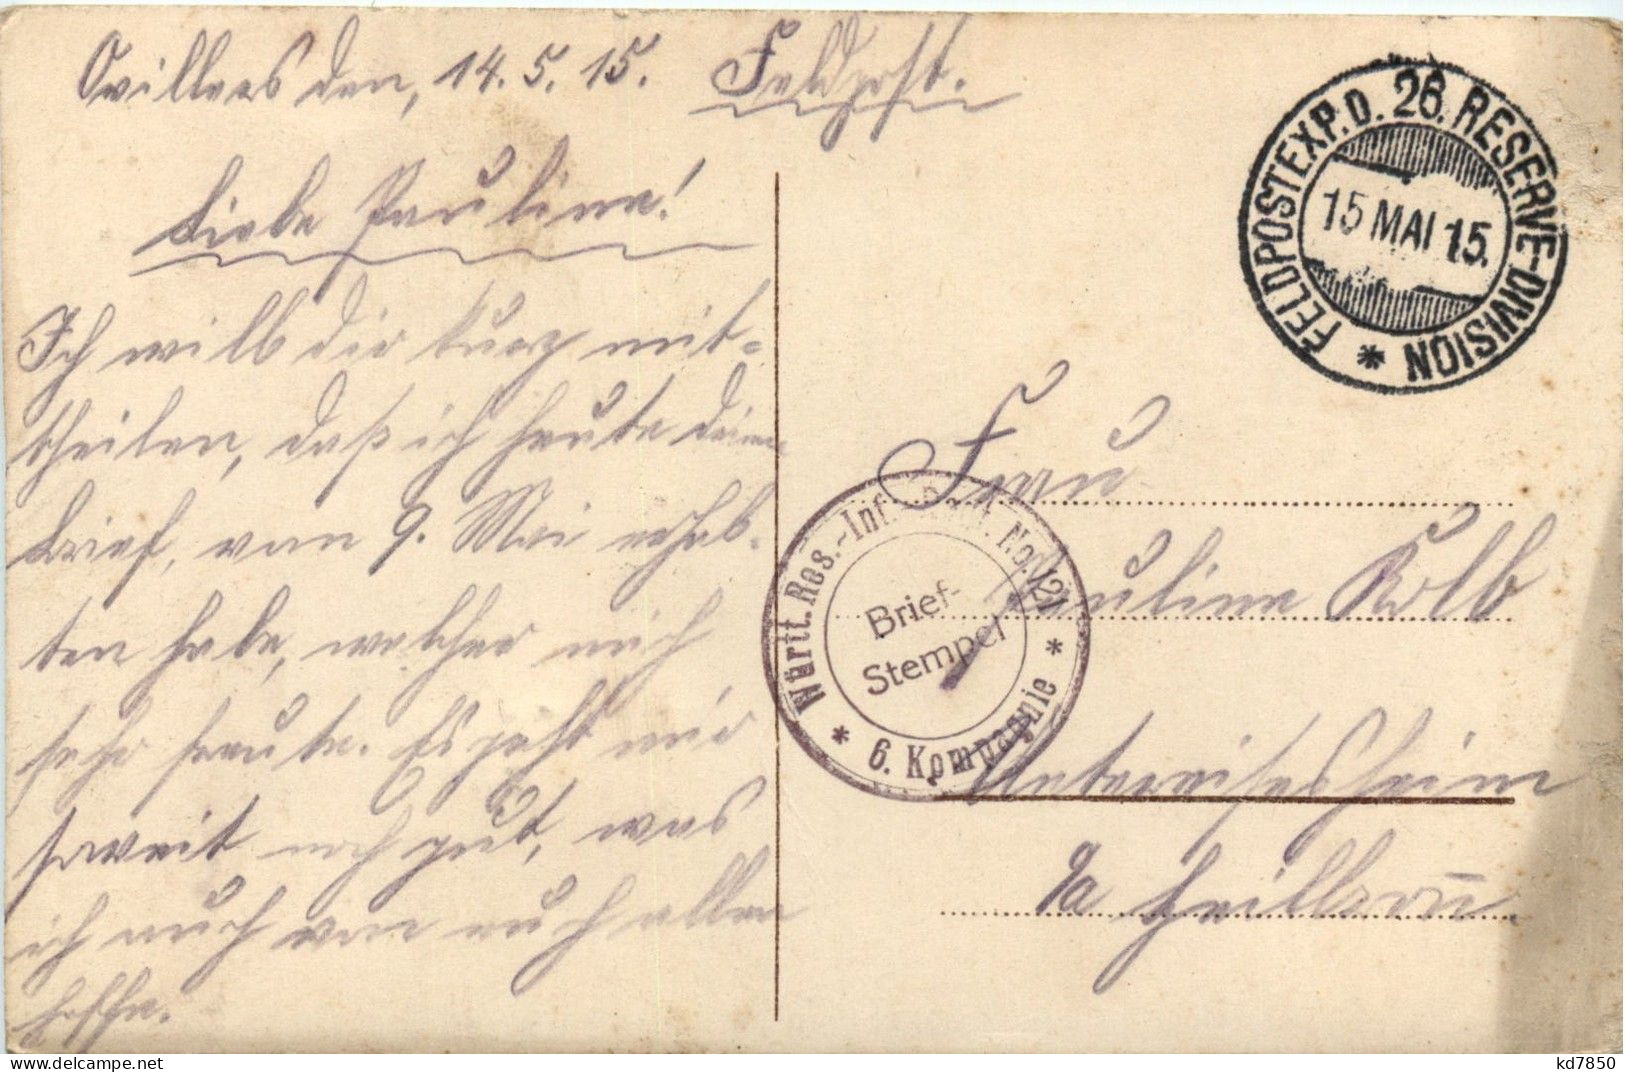 Ovillers den, 14.5.15. Feldpost.
Liebe Pauline!
Ich will dir kurz mit=
theilen, daß ich heute deinen
Brief, vom 9. Mai erhal-
ten habe, welcher mich
sehr freute. Es geht mir
soweit noch gut, was
ich auch von euch allen
hoffe.
FELDPOSTEXP. D. 26. RESERVE-DIVISION *
15 MAI 15.
Württ. Res.-Inf. Regt. No. 121
* 6. Kompagnie *
Brief-
Stempel
Frau
Pauline Kolb
Untereisesheim
Heilbronn
www.delcampe.net
kd7850